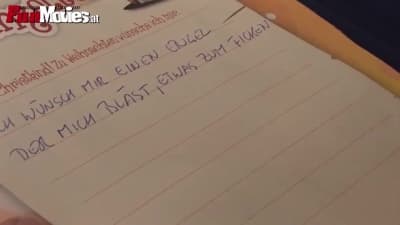 FunMovies.at
Christkind! Zu Weihnachten wünsche ich mir
ICH WÜNSCH MIR EINEN ENGEL
DER MICH BLÄST, ETWAS ZUM FICKEN